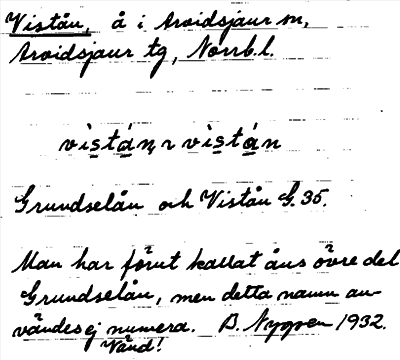 Viståu, å i Arvidsjaur sn,
Arvidsjaur tg, Norrb. l.
vistån, r vistån
Grundselån och Viståu G. 35.
Man har förut kallat åns övre del
Grundselån, men detta namn an-
vändes ej numera. B. Nygren 1932.
Vänd!